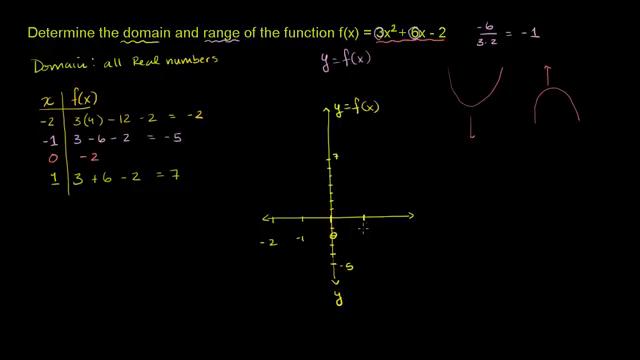 Determine the domain and range of the function f(x) = 3x² + 6x - 2
-6 / 3·2 = -1
Domain: all Real numbers
y = f(x)
x f(x)
-2 3(4) - 12 - 2 = -2
-1 3 - 6 - 2 = -5
0 -2
1 3 + 6 - 2 = 7
y = f(x)
7
-2 -1 0
-5
y